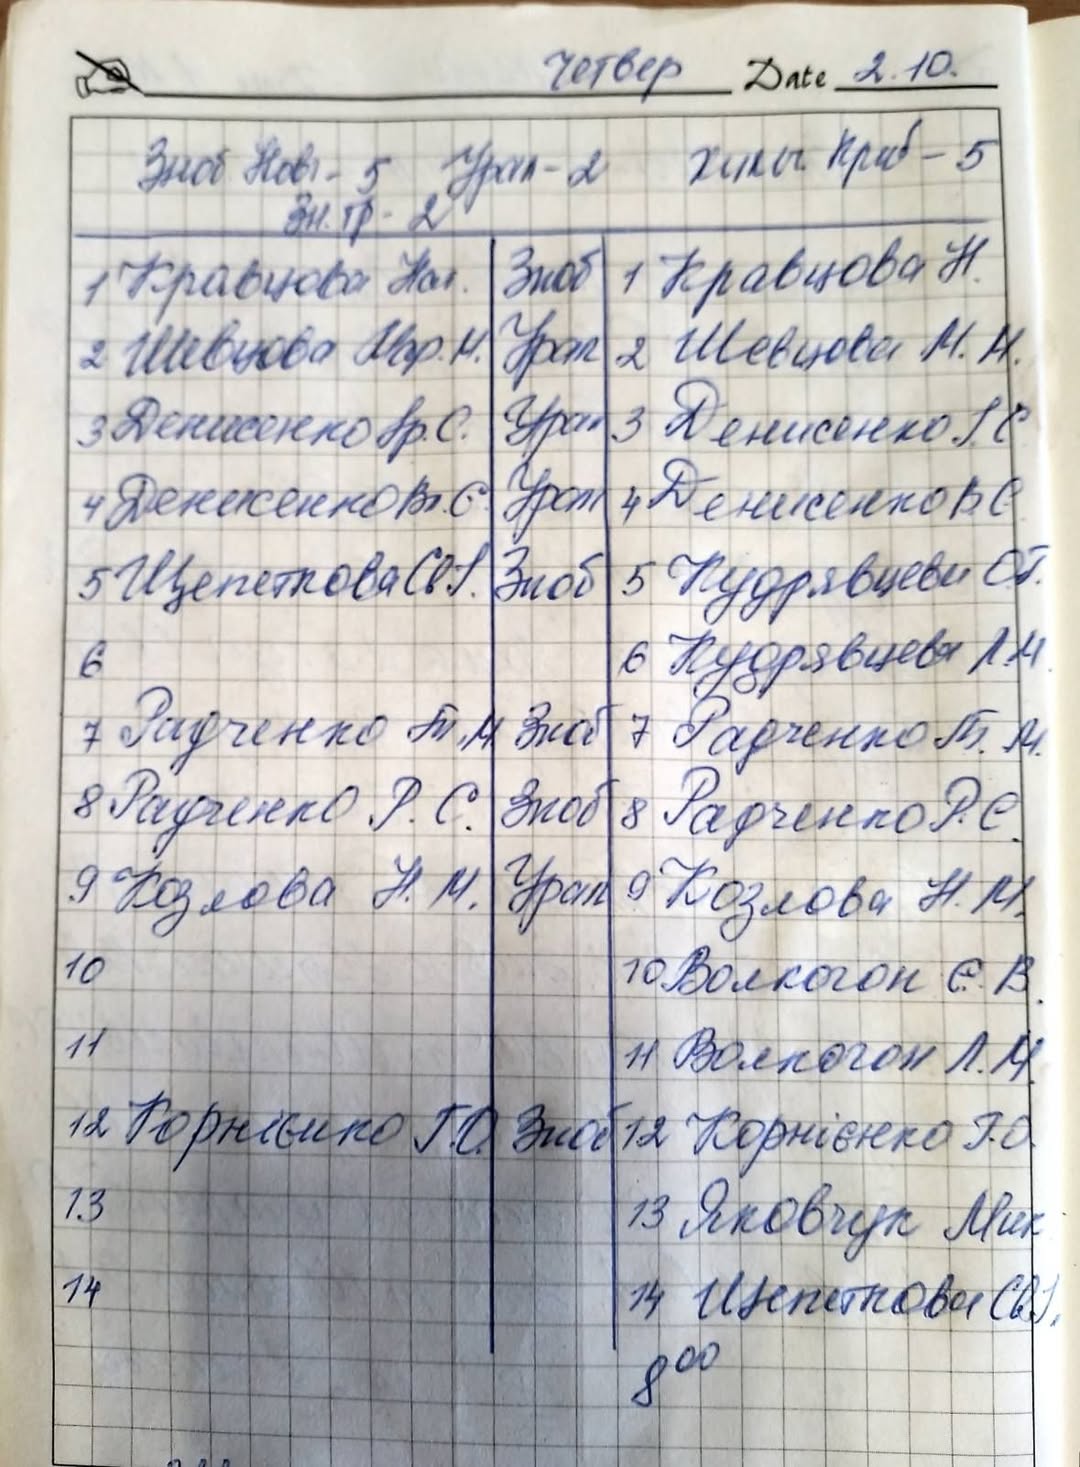 Четвер Date 2.10.
Зноб Нов - 5 Урал - 2 Хильч Криб - 5
Зн. тр - 2
1 Кравцова Нат. Зноб 1 Кравцова Н.
2 Шевцова М. Урал 2 Шевцова М. М.
3 Денисенко С. Урал 3 Денисенко І. С
4 Денисенко Вт. С. Урал 4 Денисенко В. С
5 Щепеткова Св І. Зноб 5 Кудрявцева О.Т.
6 6 Кудрявцева Л.М.
7 Радченко Т.М. Зноб 7 Радченко Т. М.
8 Радченко Р. С. Зноб 8 Радченко Р. С.
9 Козлова Н. М. Урал 9 Козлова Н. М.
10 10 Волкогон Є. В.
11 11 Волкогон Л. М.
12 Корнієнко Г.О. Зноб 12 Корнієнко Г.О.
13 13 Яковчук Мик
14 14 Щепеткова Св І.
8 00